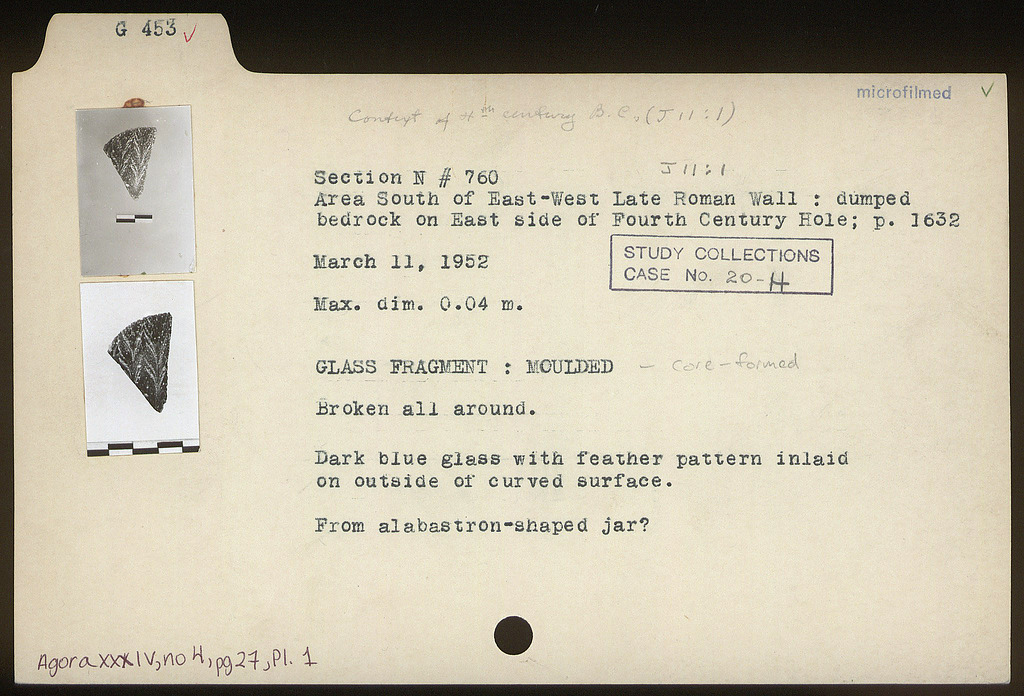 G 453
microfilmed
Context of 4th century B.C. (J 11:1)
J 11:1
Section N # 760
Area South of East-West Late Roman Wall : dumped
bedrock on East side of Fourth Century Hole; p. 1632
March 11, 1952
STUDY COLLECTIONS
CASE No. 20-H
Max. dim. 0.04 m.
GLASS FRAGMENT : MOULDED - core-formed
Broken all around.
Dark blue glass with feather pattern inlaid
on outside of curved surface.
From alabastron-shaped jar?
Agora XXXIV, no 4, pg 27, Pl. 1